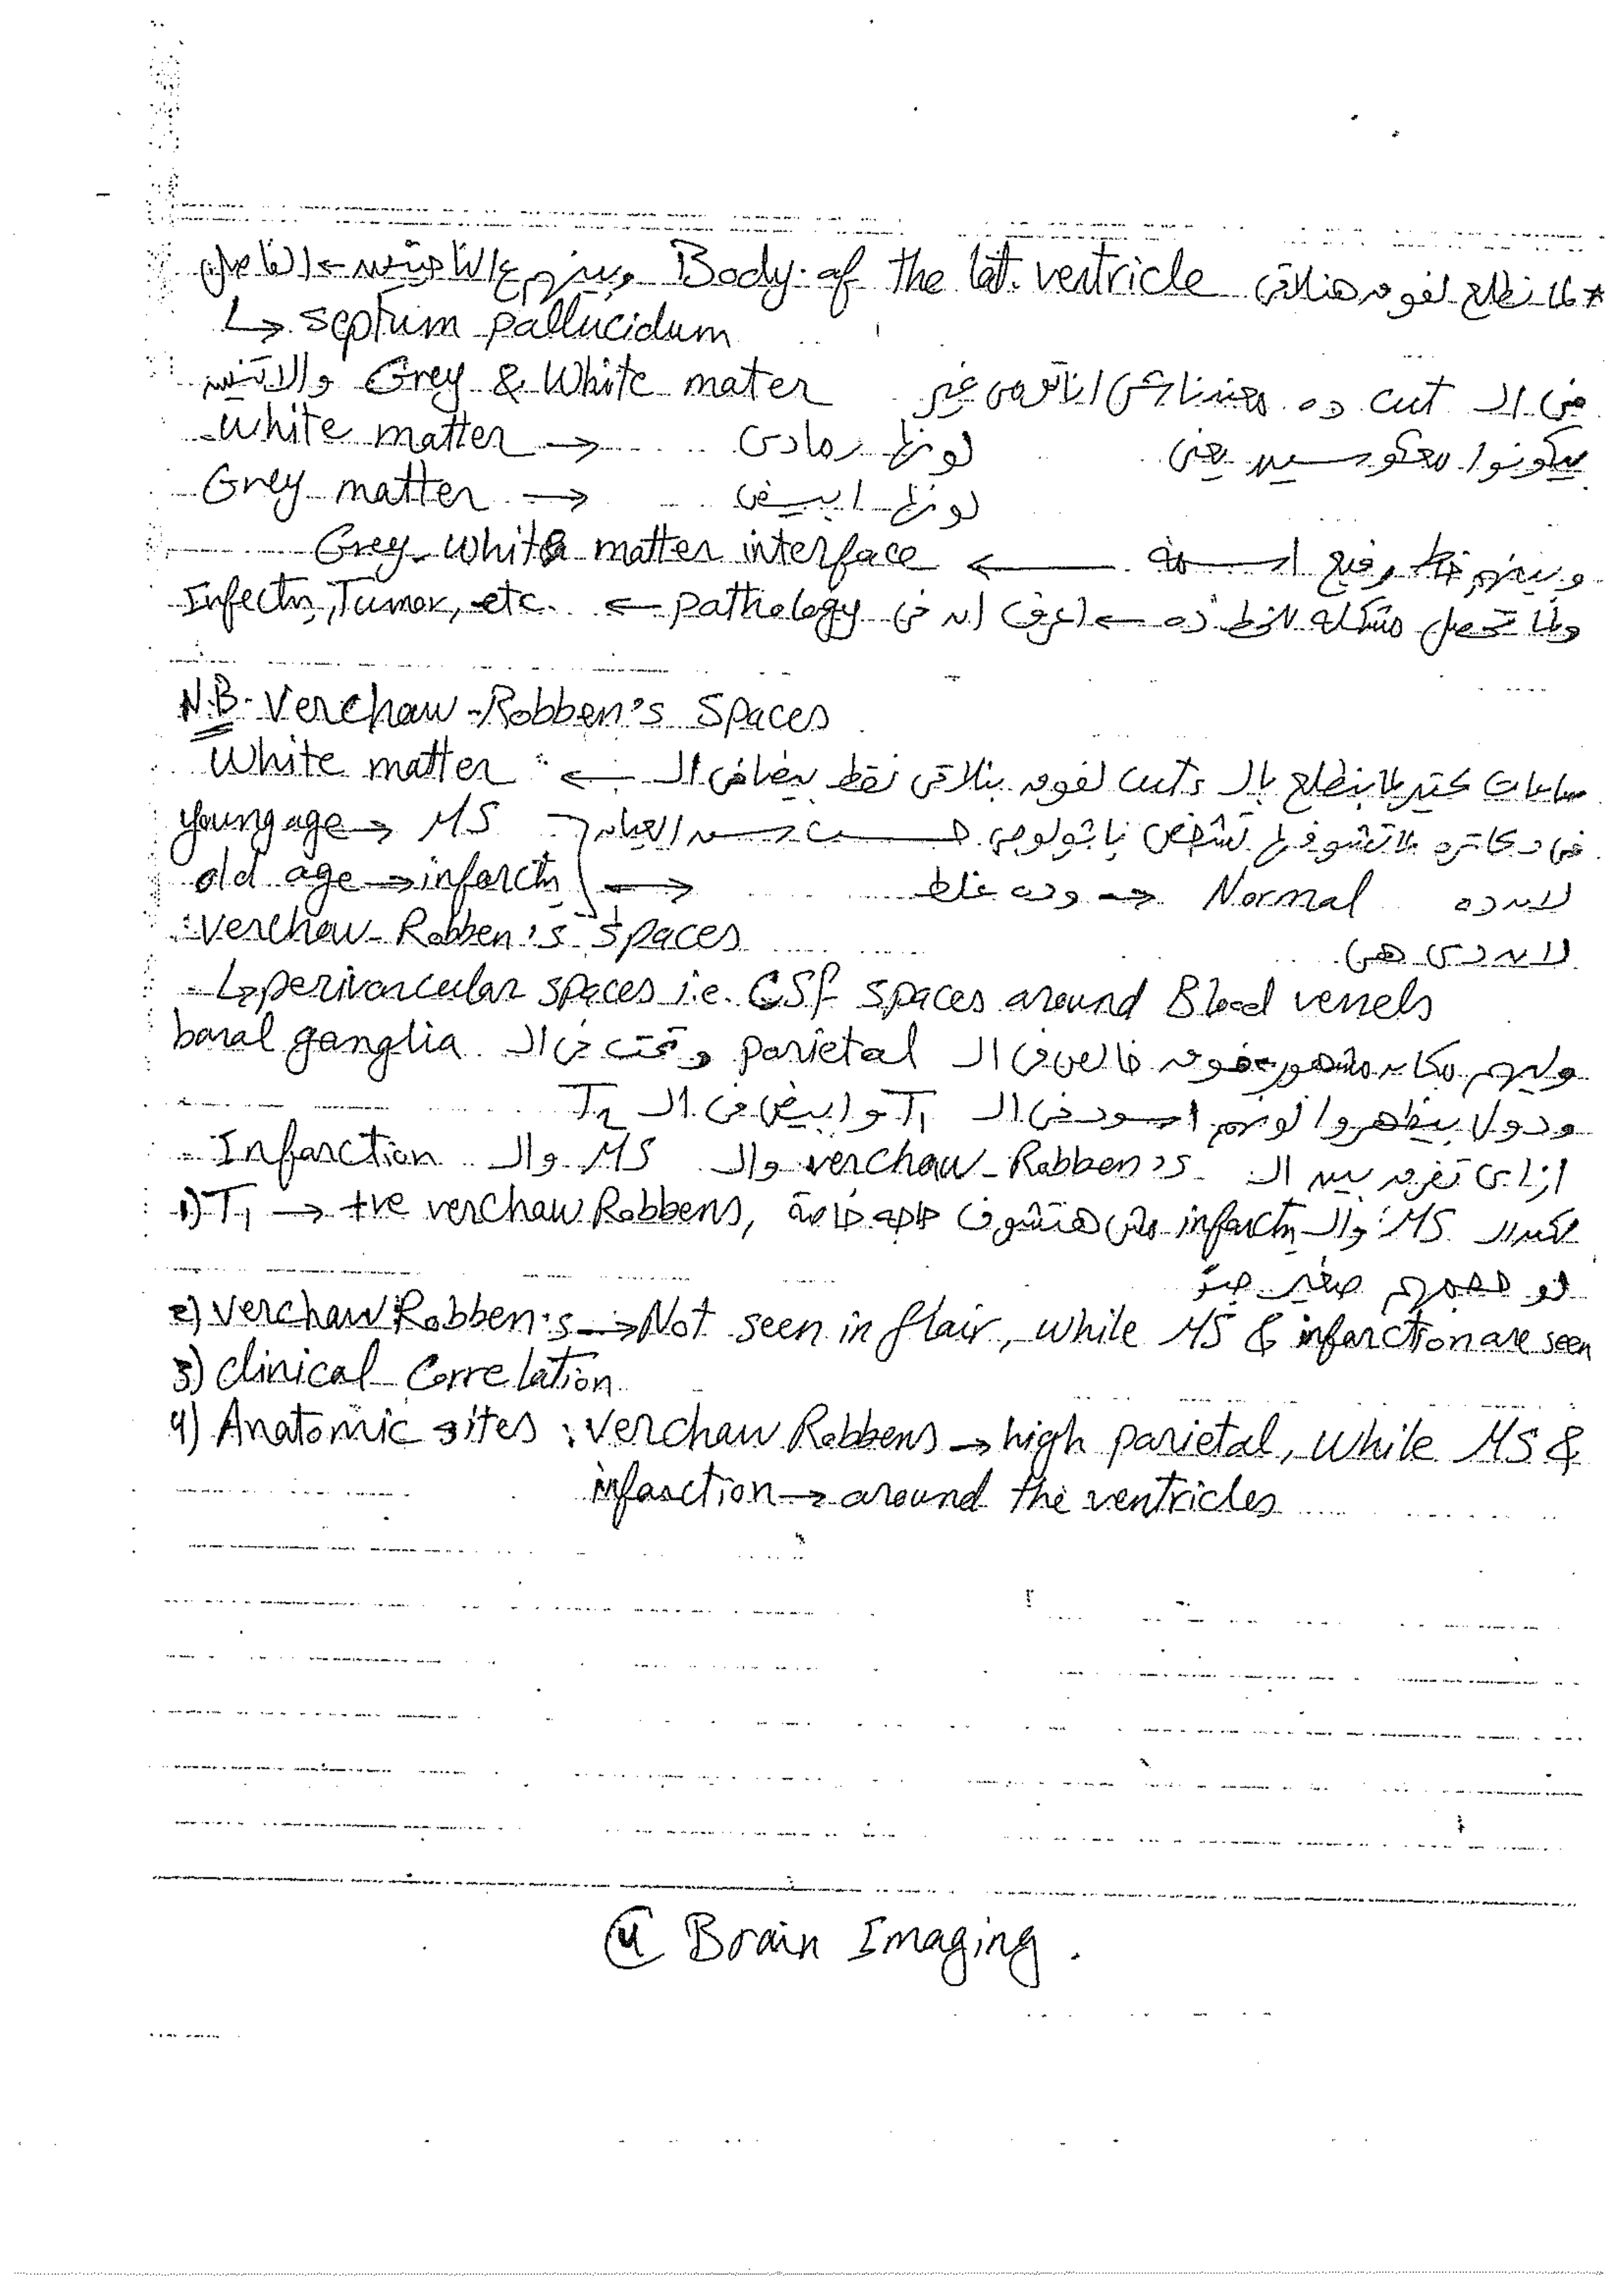 * لما نطلع لفوق هنلاقى Body of the lat. ventricle وبينهم الفاصل
↳ septum pallucidum
فى الـ cut ده معندناش اناتومى غير Grey & White mater والاتنين
بيكونوا معكوسين يعنى لونها رمادى ← White matter
لونها ابيض ← Grey matter
وبينهم خط رفيع اسمه ← Grey-White matter interface
ولما تحصل مشكله للخط ده ← اعرف ان فى pathology ← Infectn, Tumor, etc.
N.B. Verchaw-Robben's Spaces
ساعات كتير لما بنطلع بالـ cuts لفوق بنلاقى نقط بيضا فى الـ ← White matter
فى دكاتره لما تشوفها تشخص باثولوجى حسب سن العيان young age → MS
old age → infarctn → وده غلط ← Normal لان ده
لان دى هى Verchaw-Robben's Spaces
↳ perivascular spaces i.e. CSF spaces around Blood vessels
وليهم مكان مشهور فوق خالص فى الـ parietal وتحت فى الـ basal ganglia
ودول بيظهروا لونهم اسود فى الـ T1 وابيض فى الـ T2
ازاى تفرق بين الـ verchaw-Robben's والـ MS والـ Infarction
1) T1 → +ve verchaw Robbens, لكن الـ MS والـ infarctn مش هتشوف حاجه خاصة
لو حجمهم صغير جدًا
2) Verchaw Robben's → Not seen in flair, while MS & infarction are seen
3) clinical Correlation
4) Anatomic sites : Verchaw Robbens → high parietal, while MS &
infarction → around the ventricles
4 Brain Imaging.